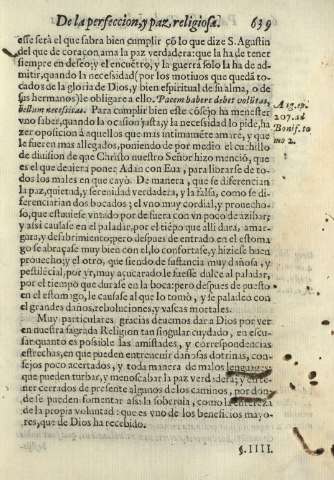 De la perfeccion, y paz, religiosa. 639
esse será el que sabra bien cumplir cō lo que dize S. Agustin
del que de coraçon ama la paz verdadera: que la ha de tener
siempre en deseo; y el encuētro, y la guerra solo la ha de ad-
mitir, quando la necessidad (por los motiuos que quedā to-
cados de la gloria de Dios, y bien espiritual de su alma, o de
sus hermanos) le obligare a ello. Pacem habere debet volūtas,
bellum necessitas. Para cumplir bien este cōsejo ha menester
Aug. ep.
207. ad
Bonif. to
mo 2.
uno saber, quando la ocasion justa, y la necessidad lo pide, ha
zer oposicion à aquellos que mas intimamēte amare, y que
le fueren mas allegados, poniendo de por medio el cuchillo
de diuision de que Christo nuestro Señor hizo menciō, que
es el que deuiera poner Adan con Eua, para librarse de to-
dos los males en que cayò. De manera, que se diferencian
la paz, quietud, y serenidad verdadera, y la falsa, como se di-
ferenciarian dos bocados; el vno muy cordial, y prouecho-
so, que estuuiesse vntado por de fuera con vn poco de azibar;
y assi causasse en el paladar, por el tiēpo que alli dura, amar-
gura, y desabrimento; pero despues de entrado en el estoma
go se abraçasse muy bien con el, lo confortasse, y hiziesse buen
prouecho; y el otro, que siendo de sustancia muy dañosa, y
pestilēcial, por yr, muy açucarado le fuesse dulce al paladar,
por el tiempo que durasse en la boca: pero despues de puesto
en el estomago, le causasse al que lo tomò, y se paladeò con
el grandes daños, reboluciones, y vascas mortales.
Muy particulares gracias deuemos dar a Dios por ver
en nuestra sagrada Religion tan singular cuydado, en escu-
sar quanto es possible las amistades, y correspondencias
estrechas, en que pueden entreuenir dañosas dotrinas, con-
sejos poco acertados, y toda manera de malos lenguajes
que puedan turbar, y menoscabar la paz verdadera; y en te-
ner cerrados de presente algunos de los caminos, por don-
de se pueden fomentar assi la soberuia, como la entereza
de la propia voluntad: que es vno de los beneficios mayo-
res, que de Dios ha recebido.
§. IIII.